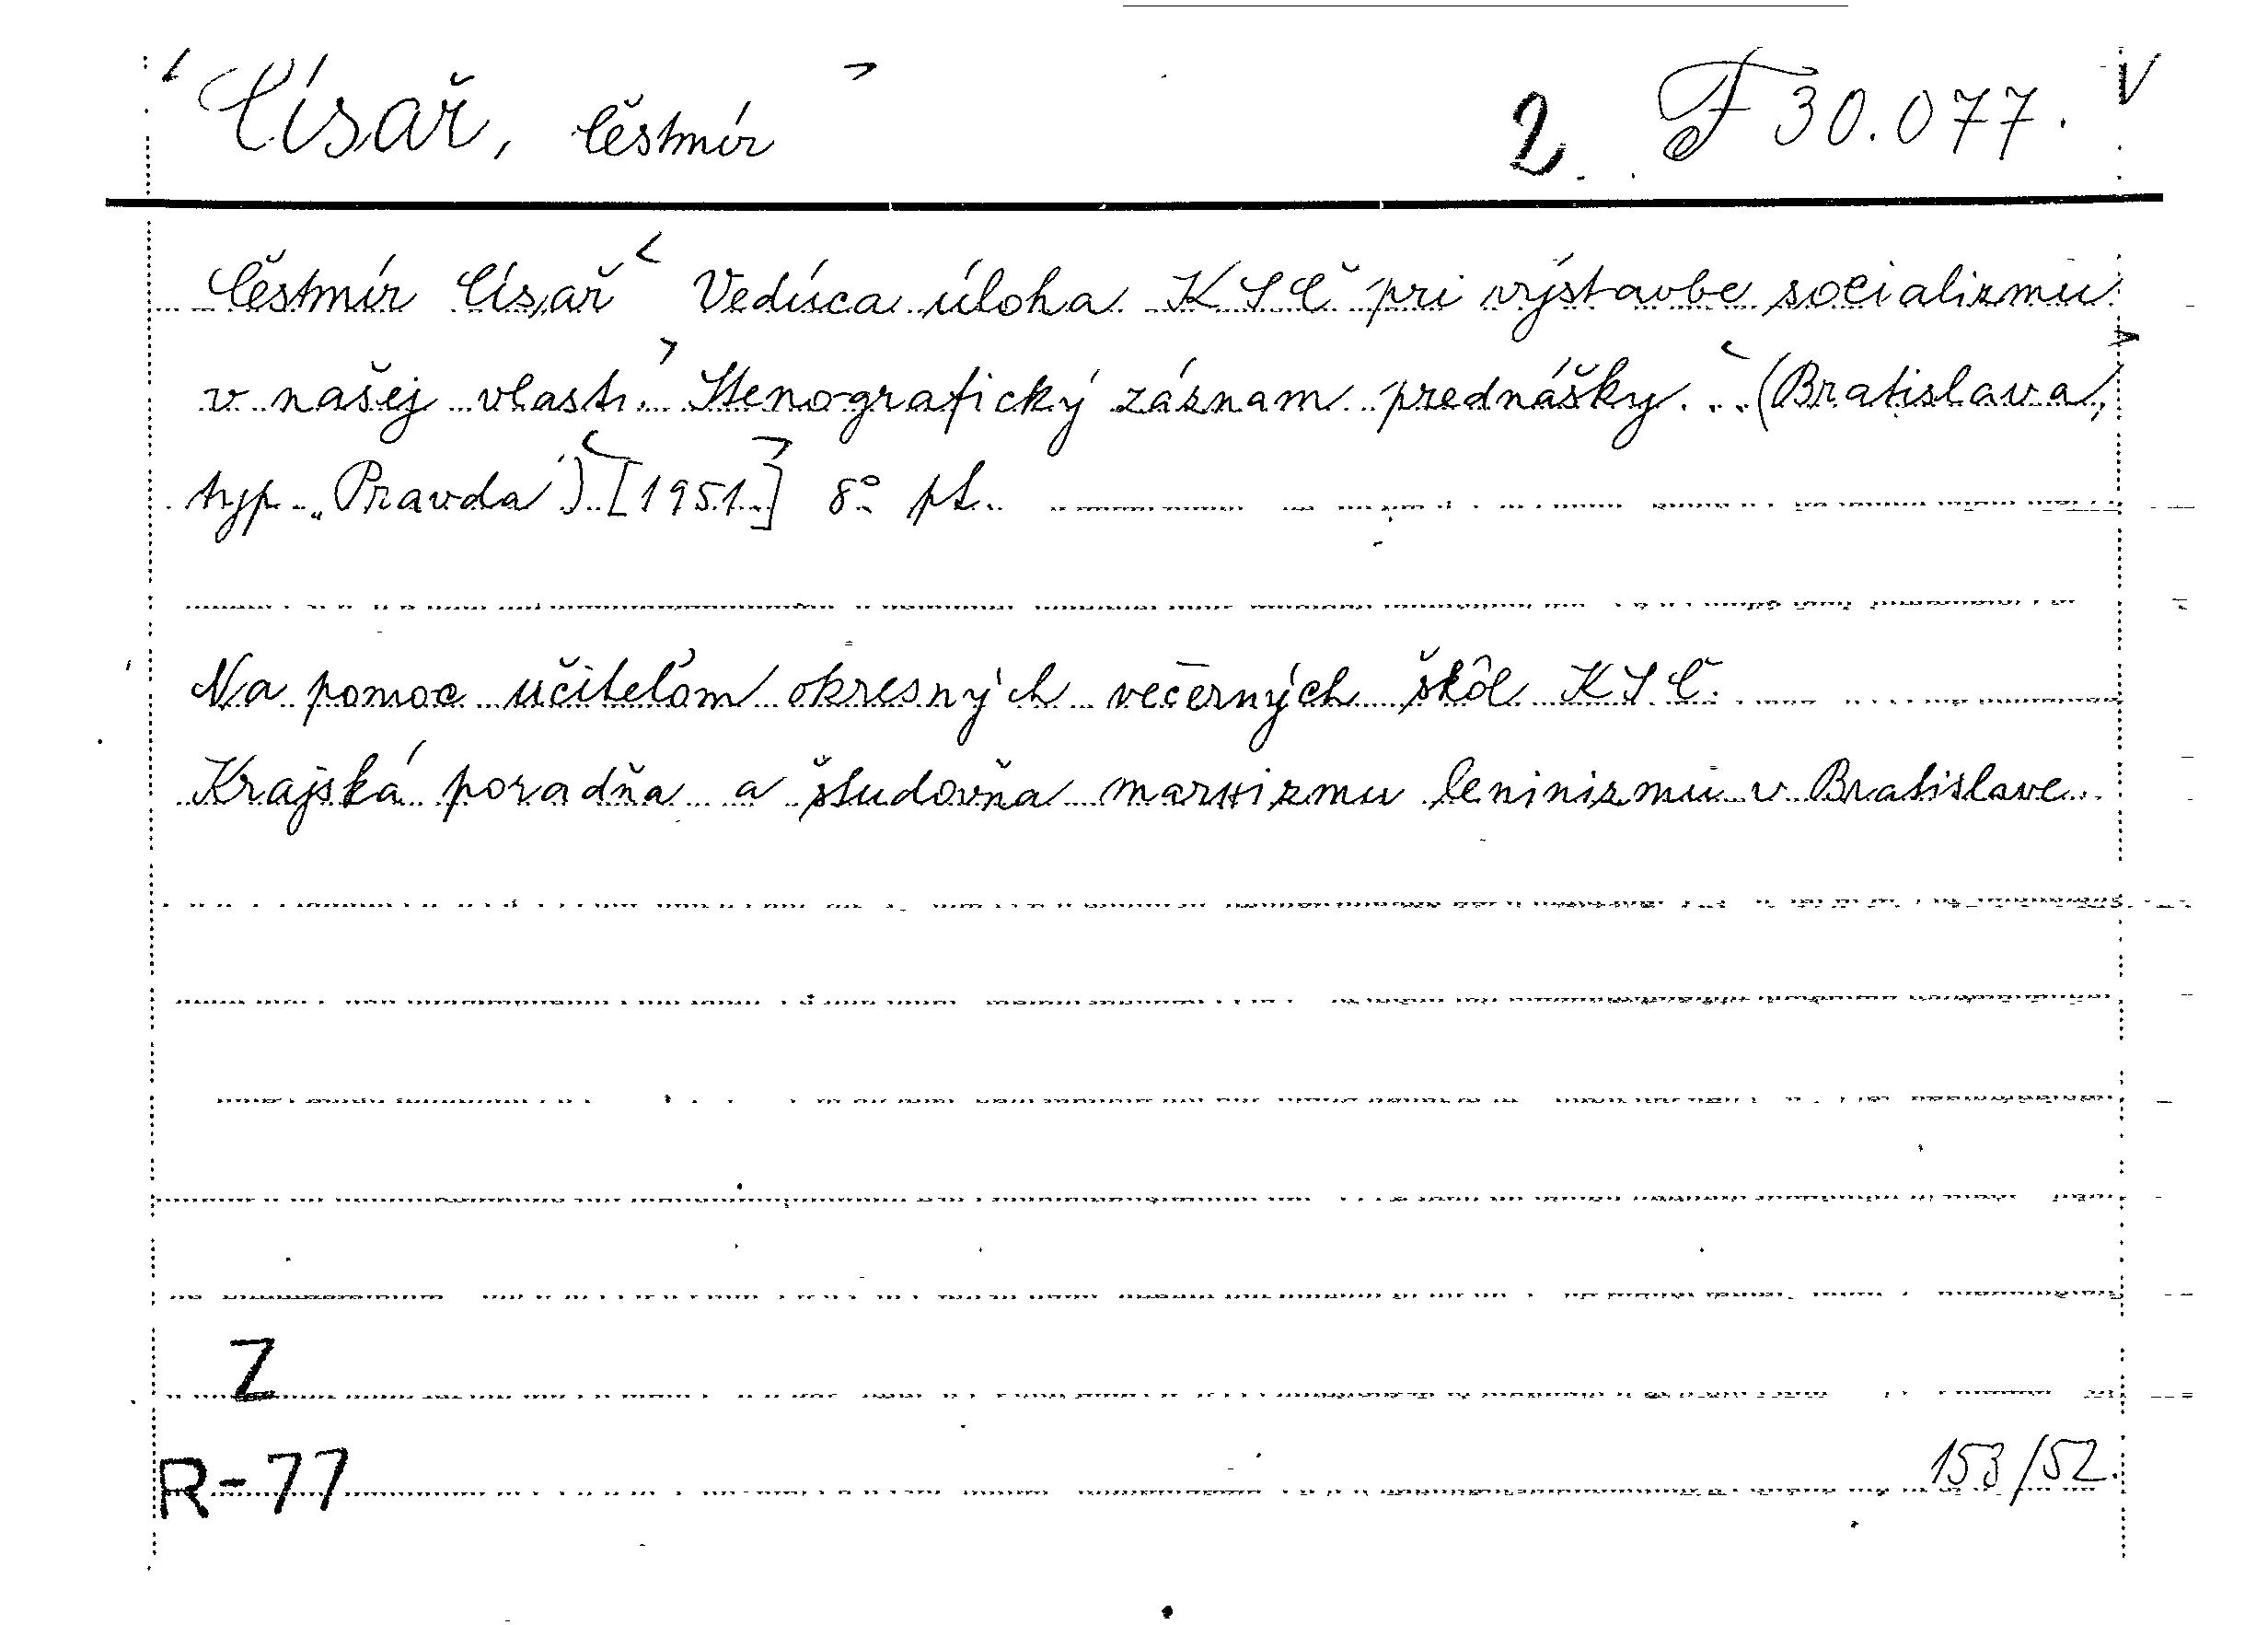 Císař, Čěstmír 2 F 30.077. V
Čěstmír Císař Vedúca úloha KSČ pri výstavbe socializmu
v našej vlasti. Stenografický záznam prednášky. .. (Bratislava,
typ. „Pravda") [1951.] 8° pt.
Na pomoc učiteľom okresných večerných škôl KSČ.
Krajská poradňa a študovňa marxizmu leninizmu v Bratislave.
Z
R-77 153/52.